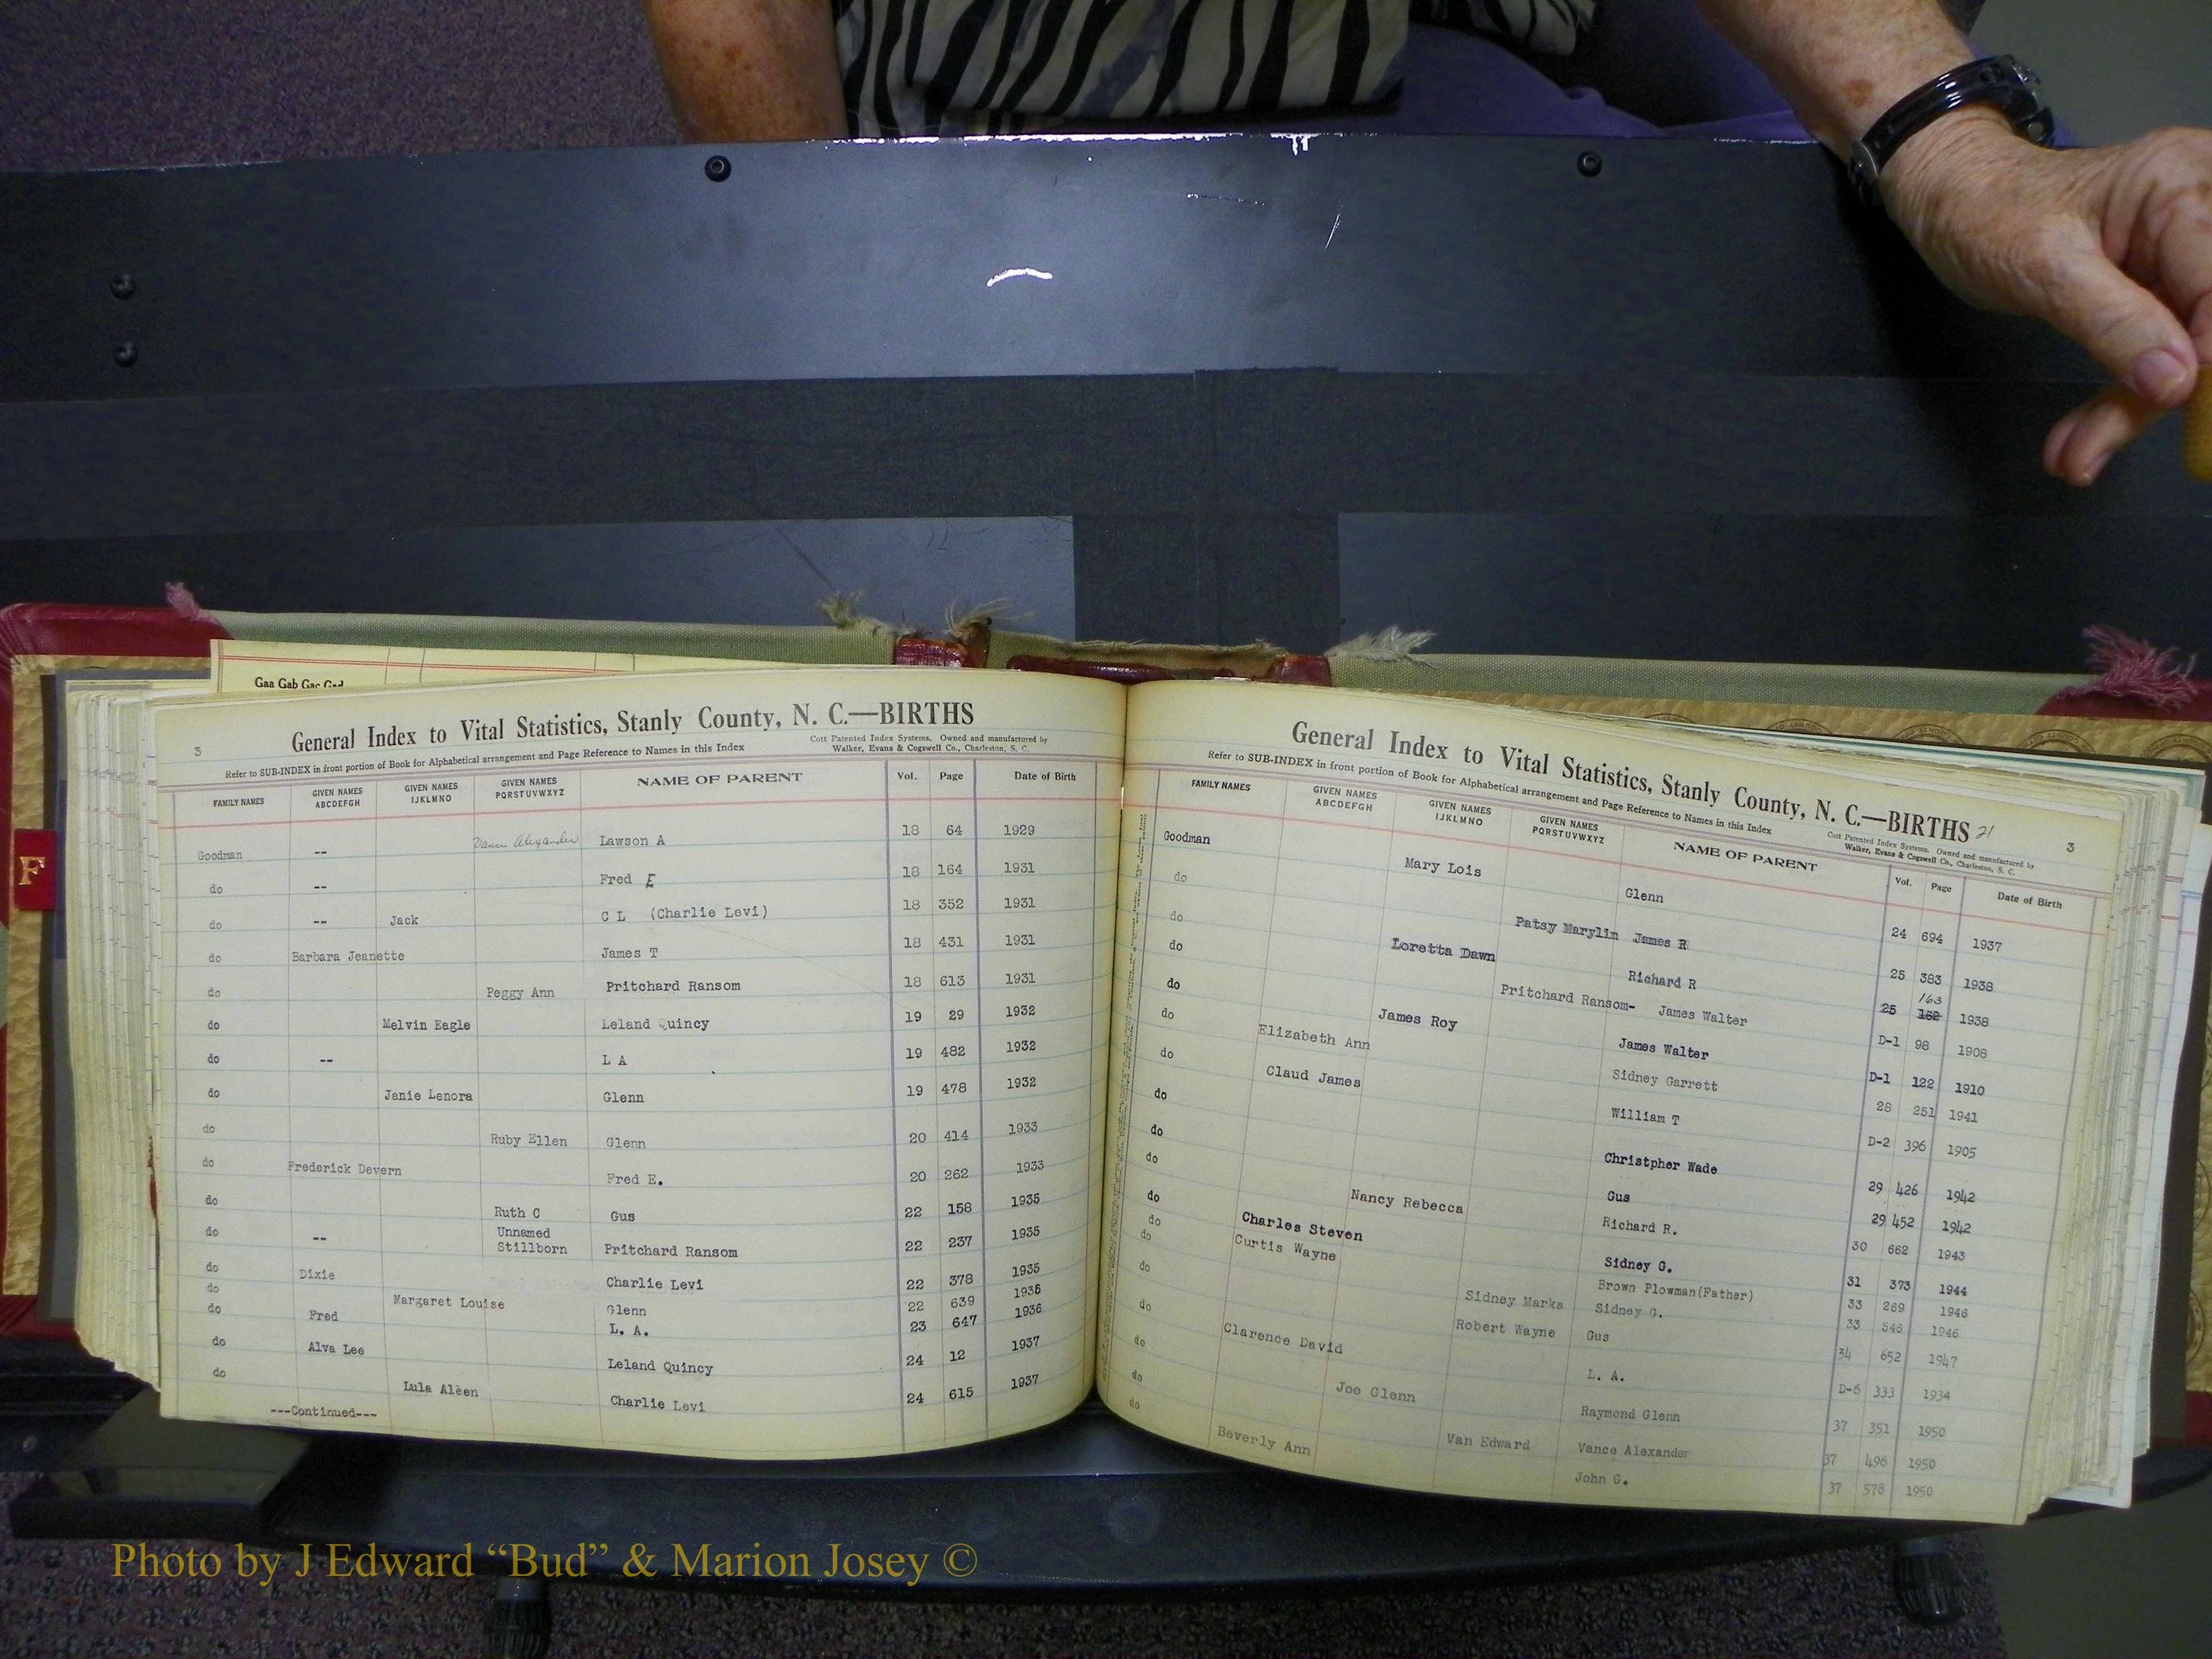 Gaa Gab Gac Gad
F
General Index to Vital Statistics, Stanly County, N. C.—BIRTHS
3
Refer to SUB-INDEX in front portion of Book for Alphabetical arrangement and Page Reference to Names in this Index
Cott Patented Index Systems. Owned and manufactured by
Walker, Evans & Cogswell Co., Charleston, S. C.
FAMILY NAMES GIVEN NAMES ABCDEFGH GIVEN NAMES IJKLMNO GIVEN NAMES PQRSTUVWXYZ NAME OF PARENT Vol. Page Date of Birth
Goodman -- Vance Alexander Lawson A 18 64 1929
do -- Fred E 18 164 1931
do -- Jack C L (Charlie Levi) 18 352 1931
do Barbara Jeanette James T 18 431 1931
do Peggy Ann Pritchard Ransom 18 613 1931
do Melvin Eagle Leland Quincy 19 29 1932
do -- L A 19 482 1932
do Janie Lenora Glenn 19 478 1932
do Ruby Ellen Glenn 20 414 1933
do Frederick Devern Fred E. 20 262 1933
do Ruth C Gus 22 158 1935
do -- Unnamed Stillborn Pritchard Ransom 22 237 1935
do Dixie Charlie Levi 22 378 1935
do Margaret Louise Glenn 22 639 1935
do Fred L. A. 23 647 1936
do Alva Lee Leland Quincy 24 12 1937
do Lula Aleen Charlie Levi 24 615 1937
---Continued---
General Index to Vital Statistics, Stanly County, N. C.—BIRTHS 21
3
Refer to SUB-INDEX in front portion of Book for Alphabetical arrangement and Page Reference to Names in this Index
Cott Patented Index Systems. Owned and manufactured by
Walker, Evans & Cogswell Co., Charleston, S. C.
FAMILY NAMES GIVEN NAMES ABCDEFGH GIVEN NAMES IJKLMNO GIVEN NAMES PQRSTUVWXYZ NAME OF PARENT Vol. Page Date of Birth
Goodman Mary Lois Glenn 24 694 1937
do Patsy Marylin James R 25 383 1938
do Loretta Dawn Richard R 25 163 1938
do Pritchard Ransom- James Walter D-1 98 1908
do James Roy James Walter D-1 122 1910
do Elizabeth Ann Sidney Garrett 28 251 1941
do Claud James William T D-2 396 1905
do Christpher Wade 29 426 1942
do Gus 29 452 1942
do Nancy Rebecca Richard R. 30 662 1943
do Charles Steven Sidney G. 31 373 1944
do Curtis Wayne Brown Plowman(Father) 33 269 1946
do Sidney Marks Sidney G. 33 546 1946
do Robert Wayne Gus 34 652 1947
do Clarence David L. A. D-6 333 1934
do Joe Glenn Raymond Glenn 37 351 1950
do Van Edward Vance Alexander 37 496 1950
do Beverly Ann John G. 37 578 1950
Photo by J Edward “Bud” & Marion Josey ©